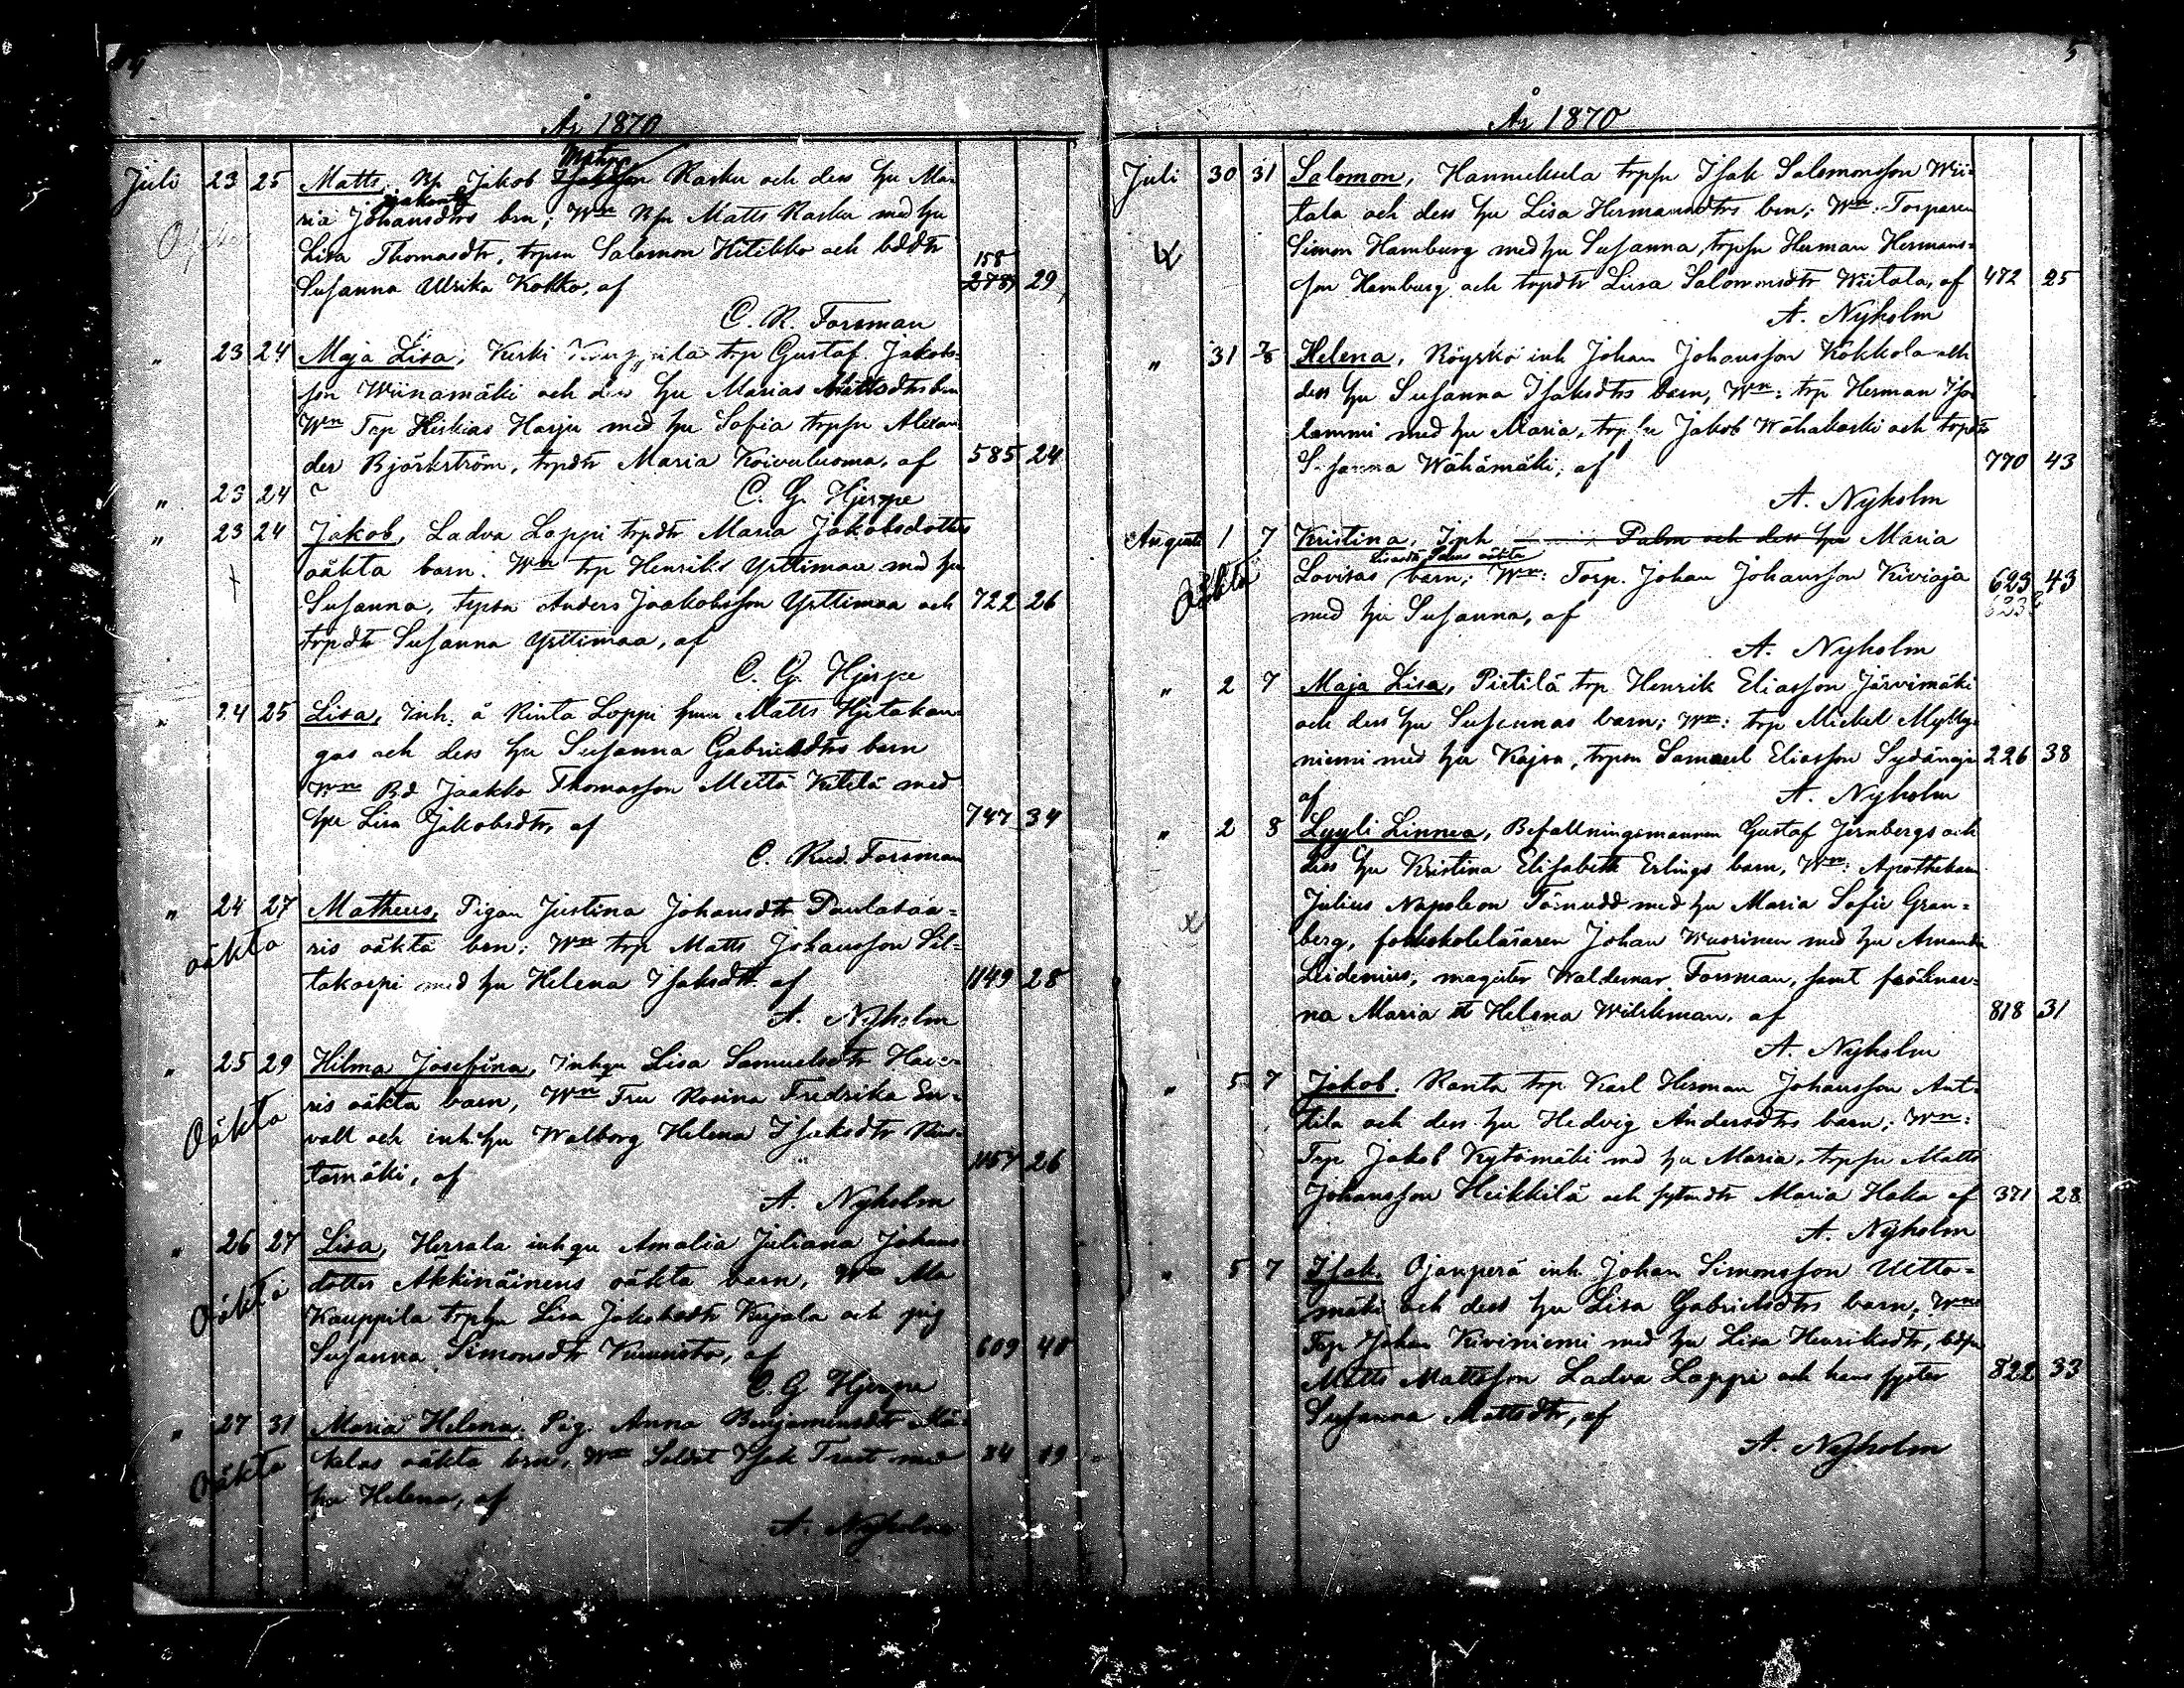 4
År 1870
Juli 23 25 Matts, Bp Jakob Rasku och dess hu Ma-
ria Johansdtrs brn; Wn Bp Matts Rasku med hu
Lisa Thomasdtr, trpsn Salomon Hitikko och bddtr
Susanna Ullrika Kokko, af 158 2789 29
C. R. Forsman
" 23 24 Maja Lisa, Kurki trp Gustaf Jakobs-
son Wiinamäki och dess hu Marias Mattsdtrs brn
Wn Trp Hiskias Harju med hu Sofia trpsn Alexan
der Björkström, trpdtr Maria Koivuluoma, af 585 24
" 23 24 C. G. Hjerpe
" 23 24 Jakob, Ladva Loppi trpdtr Maria Jakobsdotters
oäkta barn. Wn trp Henriks Yrttimaa med hu
Susanna, trpsn Anders Jaakobsson Yrttimaa och 722 26
trpdtr Susanna Yrttimaa, af
C. G. Hjerpe
" 24 25 Lisa, Inh. å Rinta Loppi Matts Hjetakan-
gas och dess hu Susanna Gabrielsdtrs barn
Wn Bd Jaakko Thomasson Mettä Kitilä med
hu Lisa Jakobsdtr, af 747 34
C. Rud. Forsman
" 24 27 Matheus, Pigan Justina Johansdtr Paulasaa-
oäkta ris oäkta brn; Wn trp Matts Johansson Sil-
takorpi med hu Helena Isaksdtr af 1149 28
A. Nyholm
" 25 29 Hilma Josefina, Inhqu Lisa Samuelsdtr Have-
Oäkta ris oäkta barn, Wn Fru Rosina Fredrika En-
vall och inh. hu Walborg Helena Isaksdtr Rin-
tamäki, af 1157 26
A. Nyholm
" 26 27 Lisa, Herrala inhqu Amalia Juliana Johans-
Oäkta dotter Akkinäinens oäkta barn, Wn Ma
Kauppila trphu Lisa Jakobsdtr Kujala och pig
Susanna Simonsdtr Kuunisto, af 609 40
C. G Hjerpe
" 27 31 Maria Helena, Pig. Anna Benjaminsdtr Mä-
Oäkta kelas oäkta brn, Wn Soldat Isak Trast med 84 19
hu Helena, af
A. Nyholm
5
År 1870
Juli 30 31 Salomon, Hannuksela trpsn Isak Salomonsson Wii-
tala och dess hu Lisa Hermansdtrs brn; Wn: Torparen
Simon Hamburg med hu Susanna, trpsn Herman Hermans-
son Hamburg och trpdtr Liisa Salomonsdtr Wiitala, af 472 25
A. Nyholm
" 31 7/8 Helena, Röyskö inh Johan Johansson Kokkola och
dess hu Susanna Isaksdtrs barn, Wn: trp Herman Iso
lammi med hu Maria, trpsn Jakob Wähakoski och trpdtr
Susanna Wähämäki, af 770 43
A. Nyholm
Augusti 1 7 Kristina, Inh Palm och dess hu Maria
Oäkta Lovisas barn; Wn: Torp. Johan Johansson Kiviaja 623 43
med hu Susanna, af
A. Nyholm
" 2 7 Maja Lisa, Pirtilä trp Henrik Eliasson Järvimäki
och dess hu Susannas barn; Wn: trp Mickel Mylly-
niemi med hu Kajsa, trpsn Samuel Eliasson Sydänoja 226 38
af A. Nyholm
" 2 8 Lyyli Linnea, Befallningsmannen Gustaf Jernbergs och
dess hu Kristina Elisabeth Erlings barn, Wn: Apothekaren
Julius Napoleon Törnudd med hu Maria Sofie Gran-
berg, folkskoleläraren Johan Wuorinen med hu Amanda
Leidenius, magister Waldemar Forsman, samt fröknar-
na Maria et Helena Wilskman, af 818 31
A. Nyholm
" 5 7 Jakob. Ranta trp Karl Herman Johansson Ant-
tila och dess hu Hedvig Andersdtrs barn; Wn:
Trp Jakob Kytömäki md hu Maria, trpsn Matts
Johansson Heikkilä och sytndtr Maria Haka af 371 28
A. Nyholm
" 5 7 Isak. Ojanperä inh Johan Simonsson Uitto-
mäki och dess hu Lisa Gabrielsdtrs barn, Wn:
Trp Johan Kiviniemi med hu Lisa Henriksdtr, bdsn
Matts Mattsson Ladva Loppi och hans syster 822 33
Susanna Mattsdtr, af
A. Nyholm